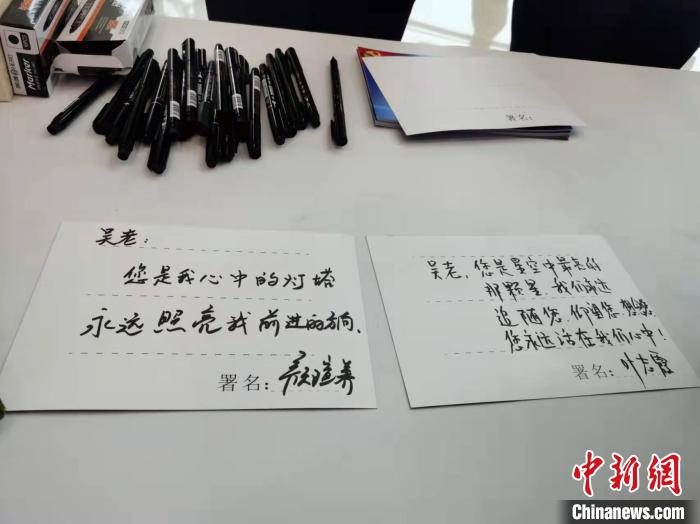 Marker
署名：
吴老：
您是我心中的灯塔
永远照亮我前进的方向.
署名：
吴老，您是星空中最亮的
那颗星，我们永远
追随您
您永远活在我们心中！
署名：叶志霞
中新网
Chinanews.com